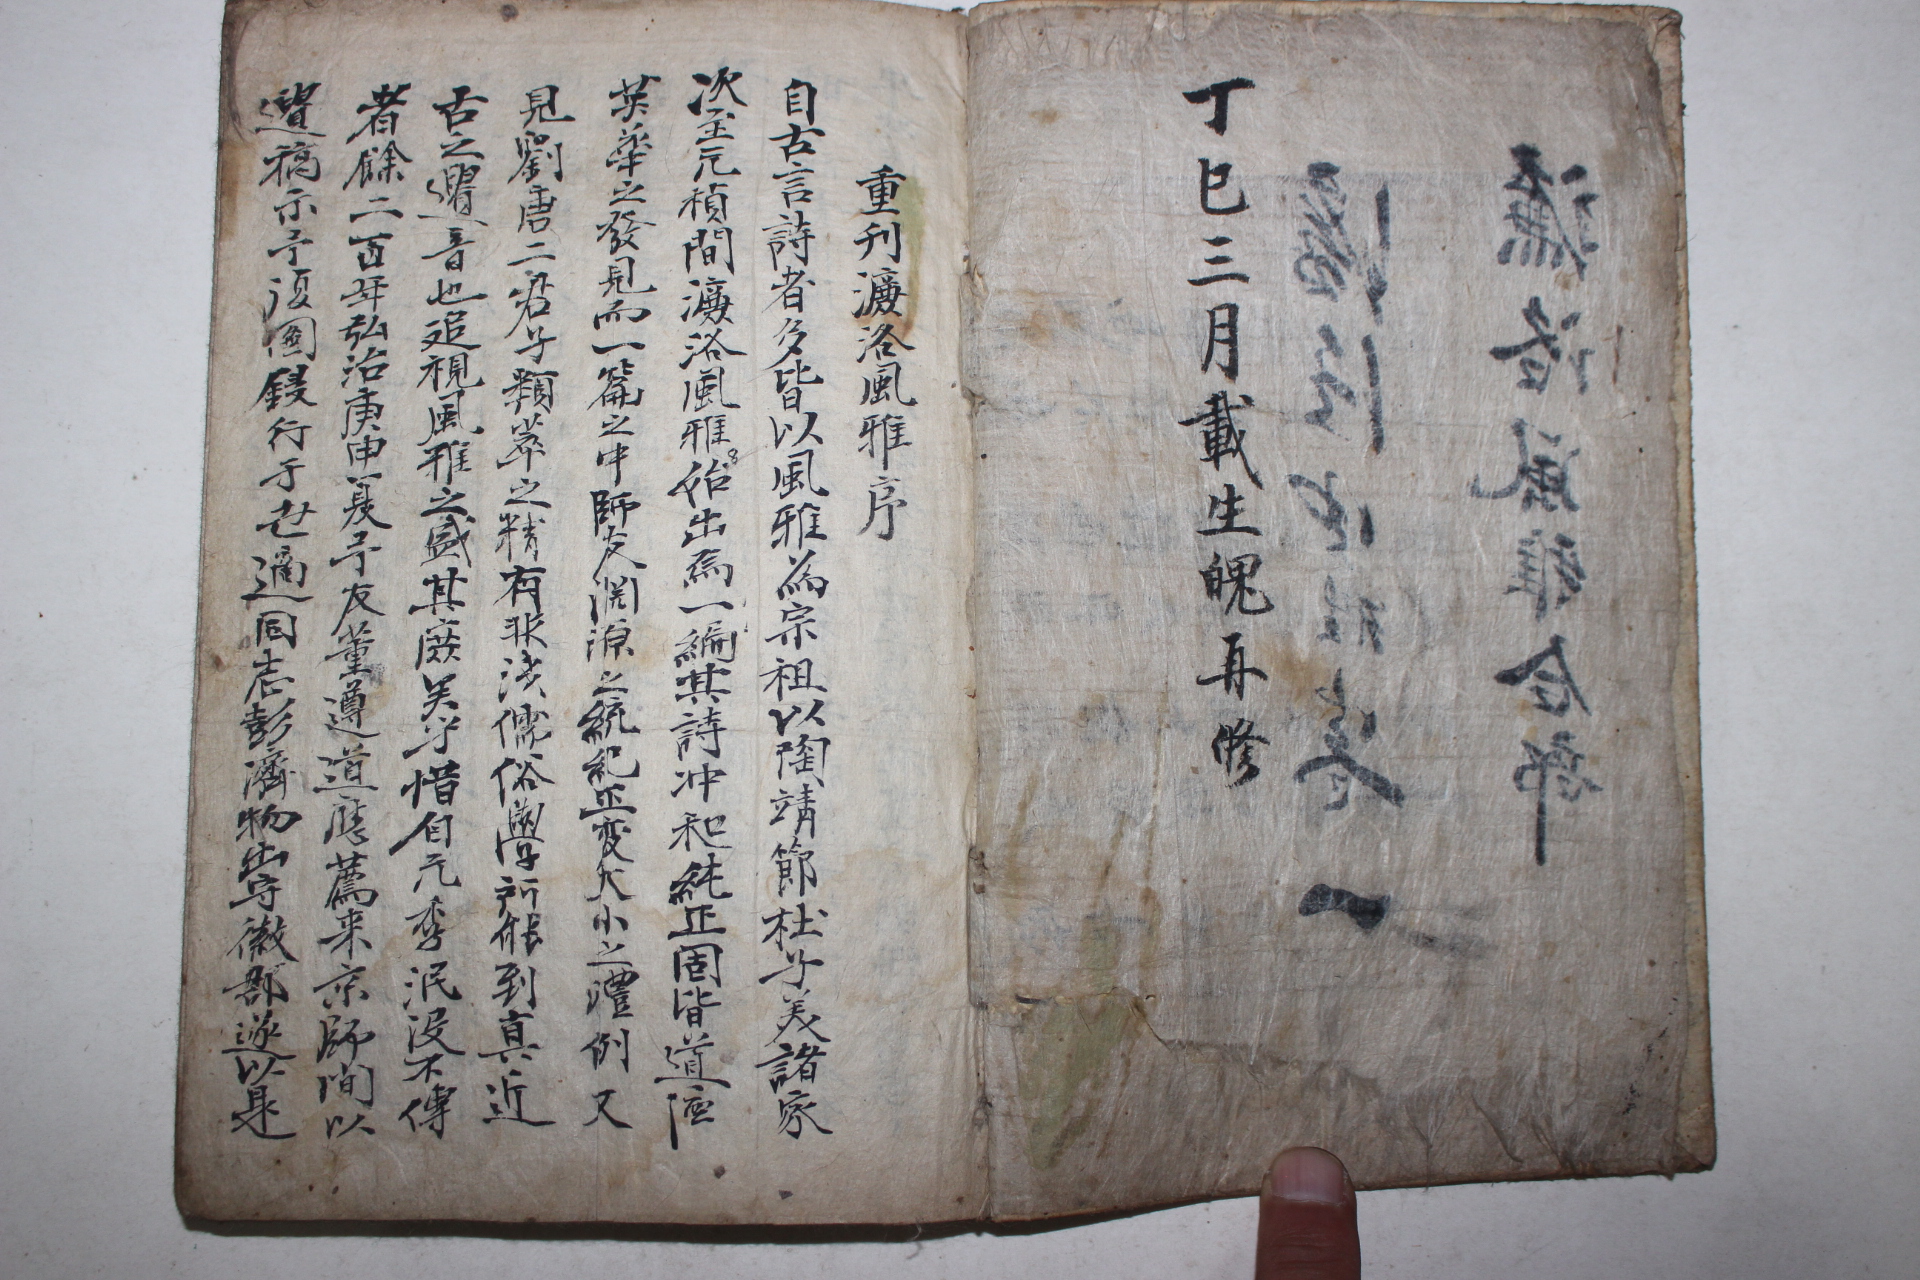 濂洛風雅合部
一
丁巳三月載生魄再修
重刊濂洛風雅序
自古言詩者多皆以風雅為宗祖以陶靖節杜子美諸家
次至元禎間濂洛風雅始出為一編其詩冲和純正固皆道德
英華之發見而一篇之中師友淵源之統紀正變大小之體例又
見劉唐二君子類萃之精有非淺儒俗學所能到真近
古之遺音也追視風雅之盛其庶矣乎惜自元季泯没不傳
者餘二百年弘治庚申夏予友董遵道應薦来京師間以
遺稿示予復圖鋟行于世適同志彭濟物出守徽郡遂以是